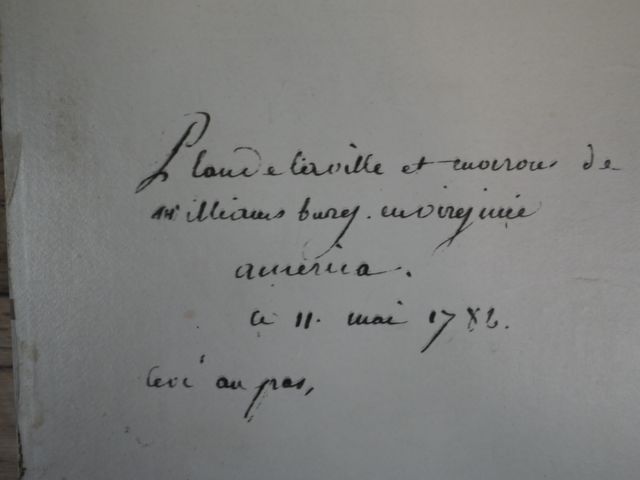 Plan de la ville et environs de
williamsburg. en virginie
america.
Le 11. mai 1782.
levé au pas,